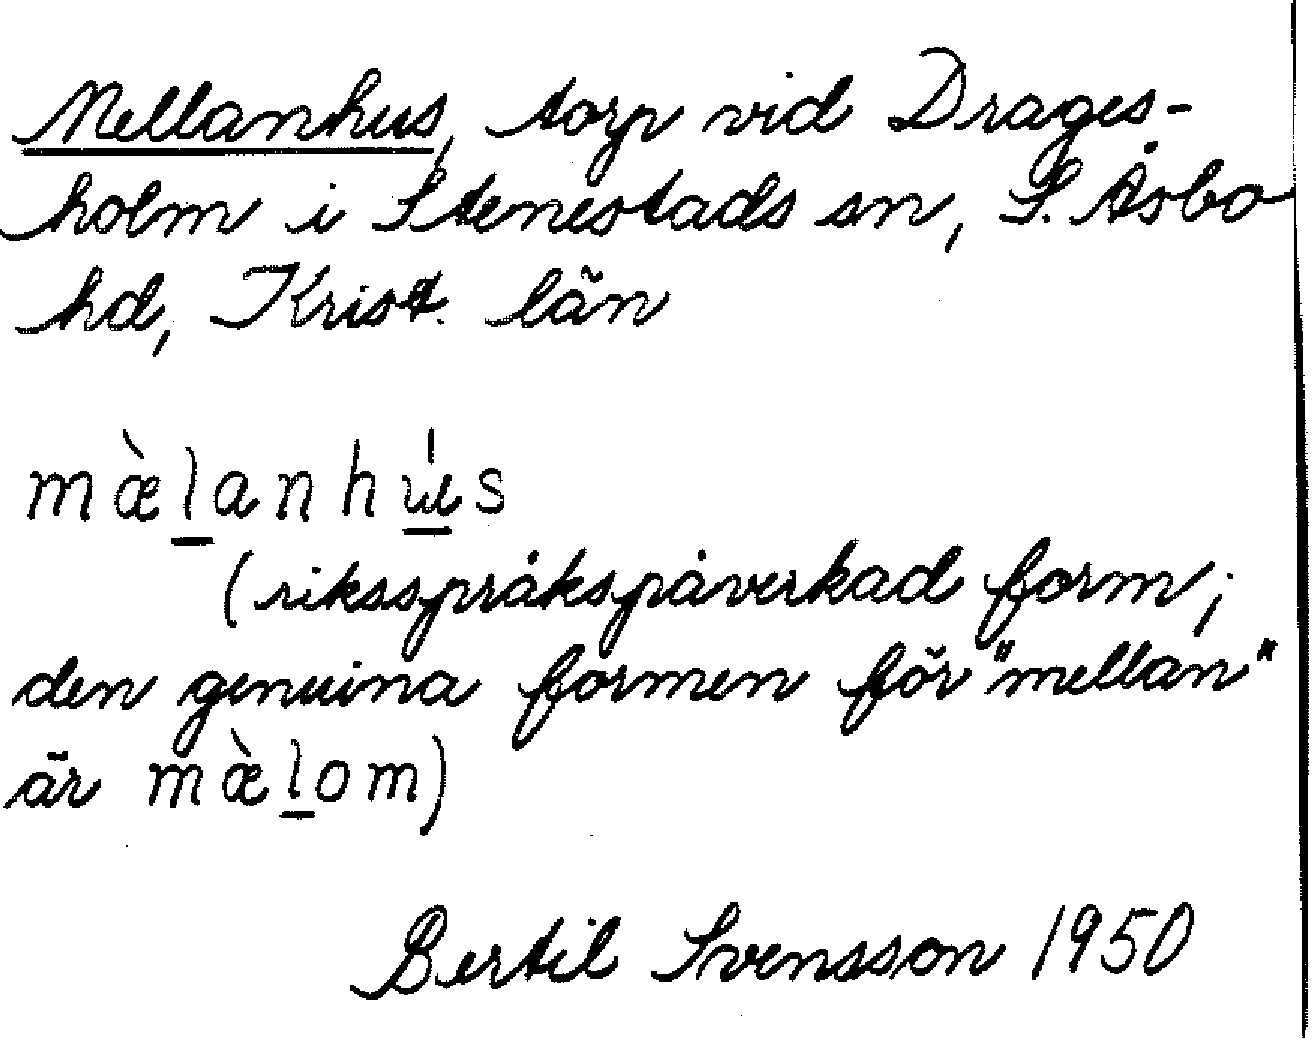 Mellanhus, torp vid Drages-
holm i Stenestads sn, S. Åsbo
hd, Krist. län
mæ̀l̲anhu̲̍s
(riksspråkspåverkad form;
den genuina formen för "mellan"
är mæ̀l̲om)
Bertil Svensson 1950